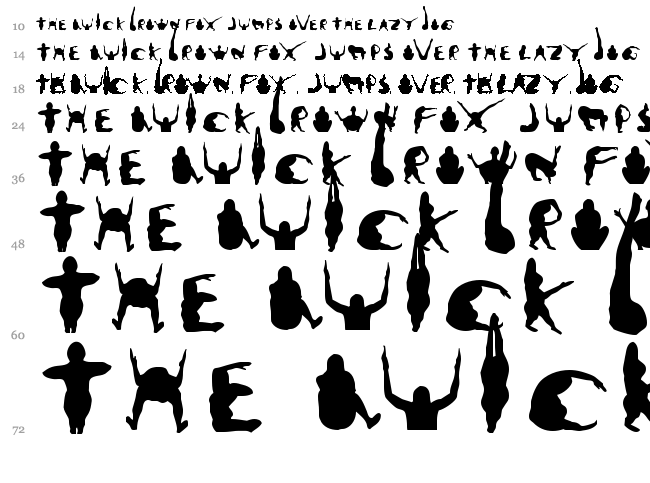 10 THE QUICK BROWN FOX JUMPS OVER THE LAZY DOG
14 THE QUICK BROWN FOX JUMPS OVER THE LAZY DOG
18 THE QUICK BROWN FOX JUMPS OVER THE LAZY DOG
24 THE QUICK BROWN FOX JUMPS
36 THE QUICK BROWN FO
48 THE QUICK BROW
60 THE QUICK B
72 THE QUICK